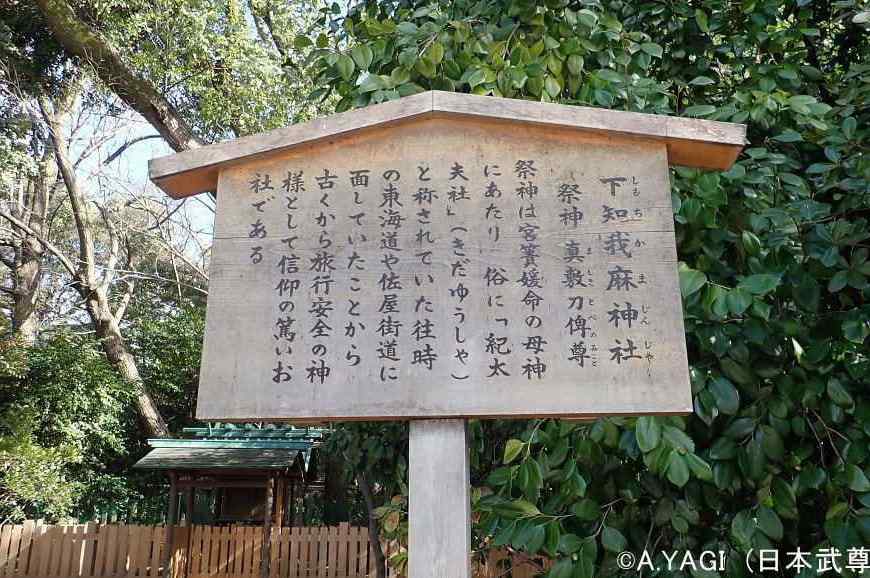 下知我麻神社
しもちかまじんじゃ
祭神 真敷刀俾尊
ましきとべのみこと
祭神は宮簀媛命の母神
にあたり 俗に「紀太
夫社」(きだゆうしゃ)
と称されていた往時
の東海道や佐屋街道に
面していたことから
古くから旅行安全の神
様として信仰の篤いお
社である
©A.YAGI(日本武尊